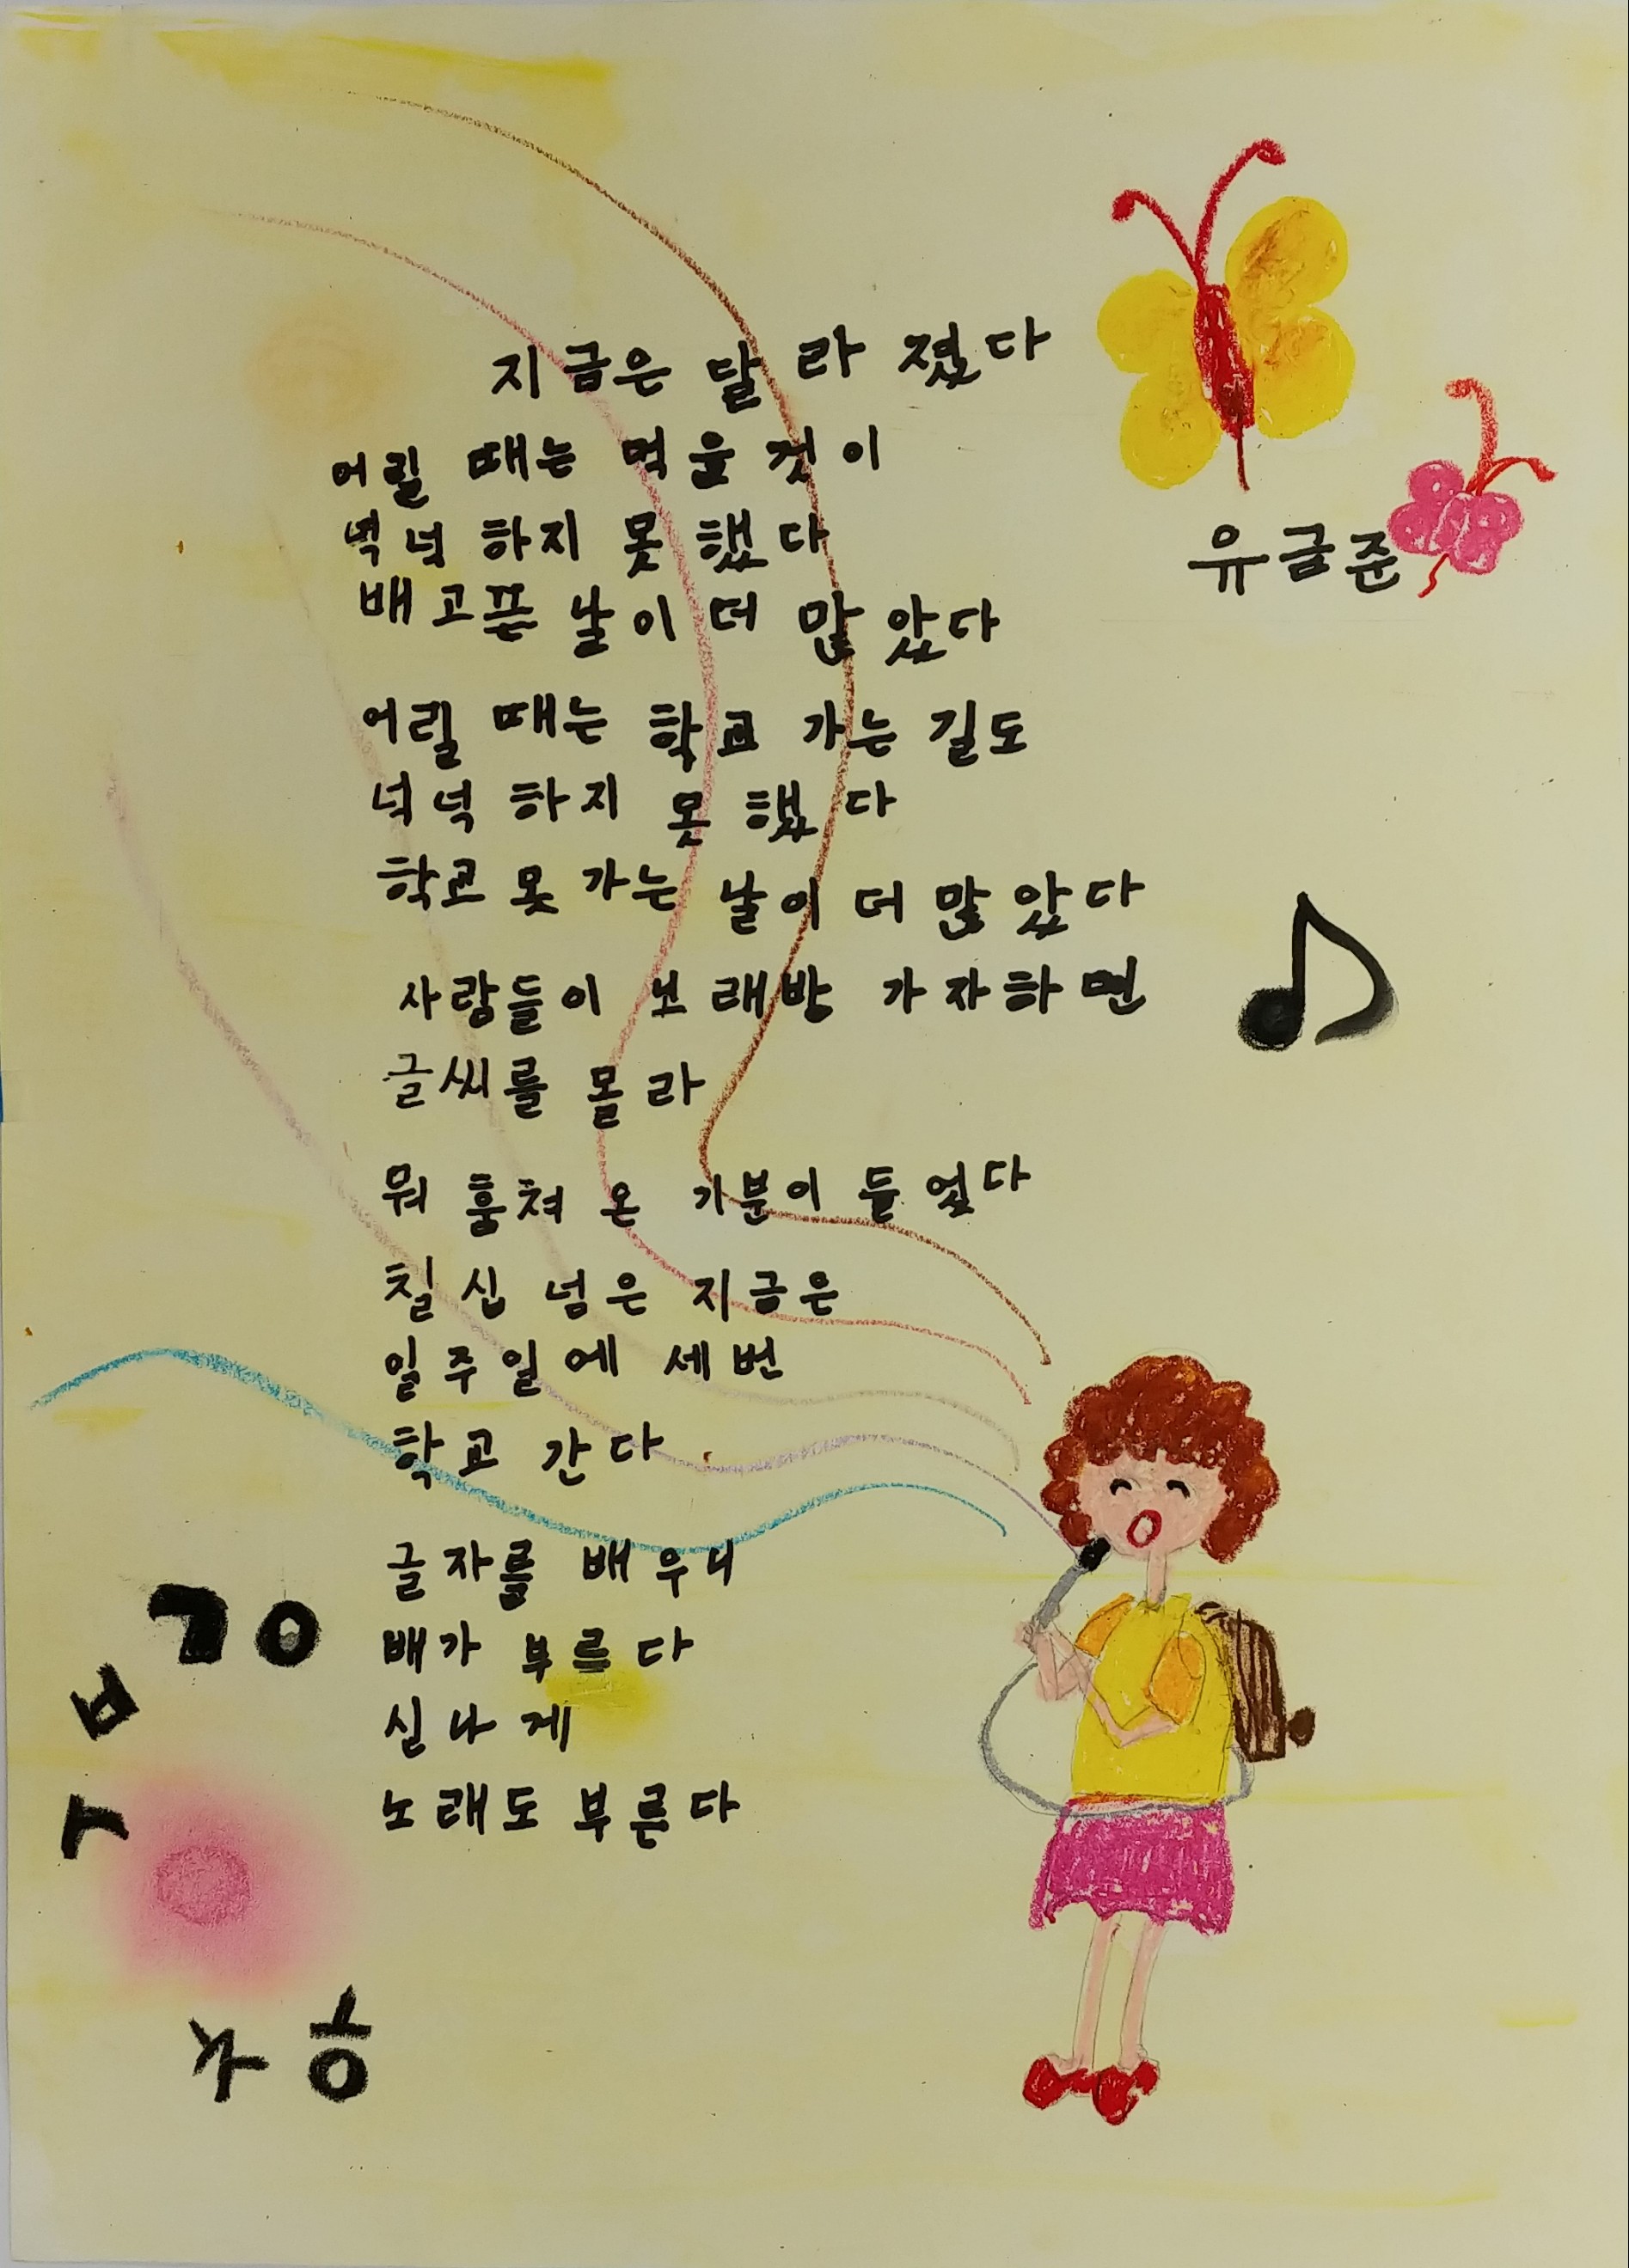 지금은 달라졌다
어릴 때는 먹을 것이
넉넉하지 못했다
배고픈 날이 더 많았다
유금준
어릴 때는 학교 가는 길도
넉넉하지 못했다
학교 못 가는 날이 더 많았다
사람들이 노래방 가자하면
글씨를 몰라
뭐 훔쳐 온 기분이 들었다
칠십 넘은 지금은
일주일에 세번
학교 간다
글자를 배우니
배가 부르다
신나게
노래도 부른다
ㄱ ㅇ
ㅂ
ㅜ
ㅊ ㅎ